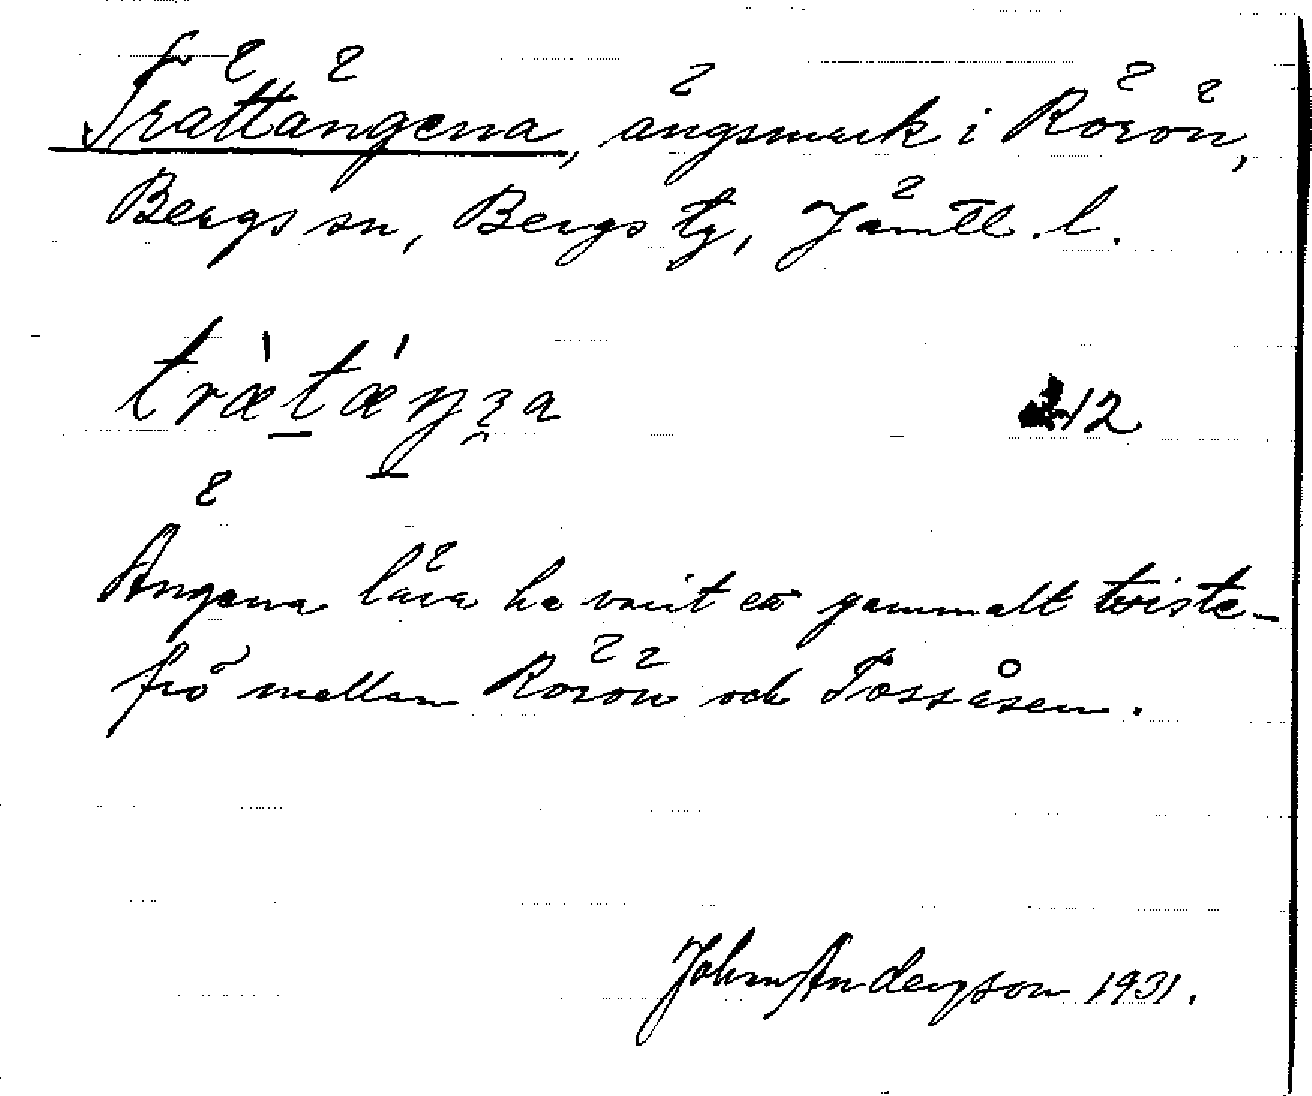 Trättängena, ängsmark i Rörön,
Bergs sn, Bergs tg, Jämtl. l.
trætæŋɜa
12
Ängena lära ha varit ett gammalt twiste-
frö mellan Rörön och Tossåsen.
John Andersson 1931.